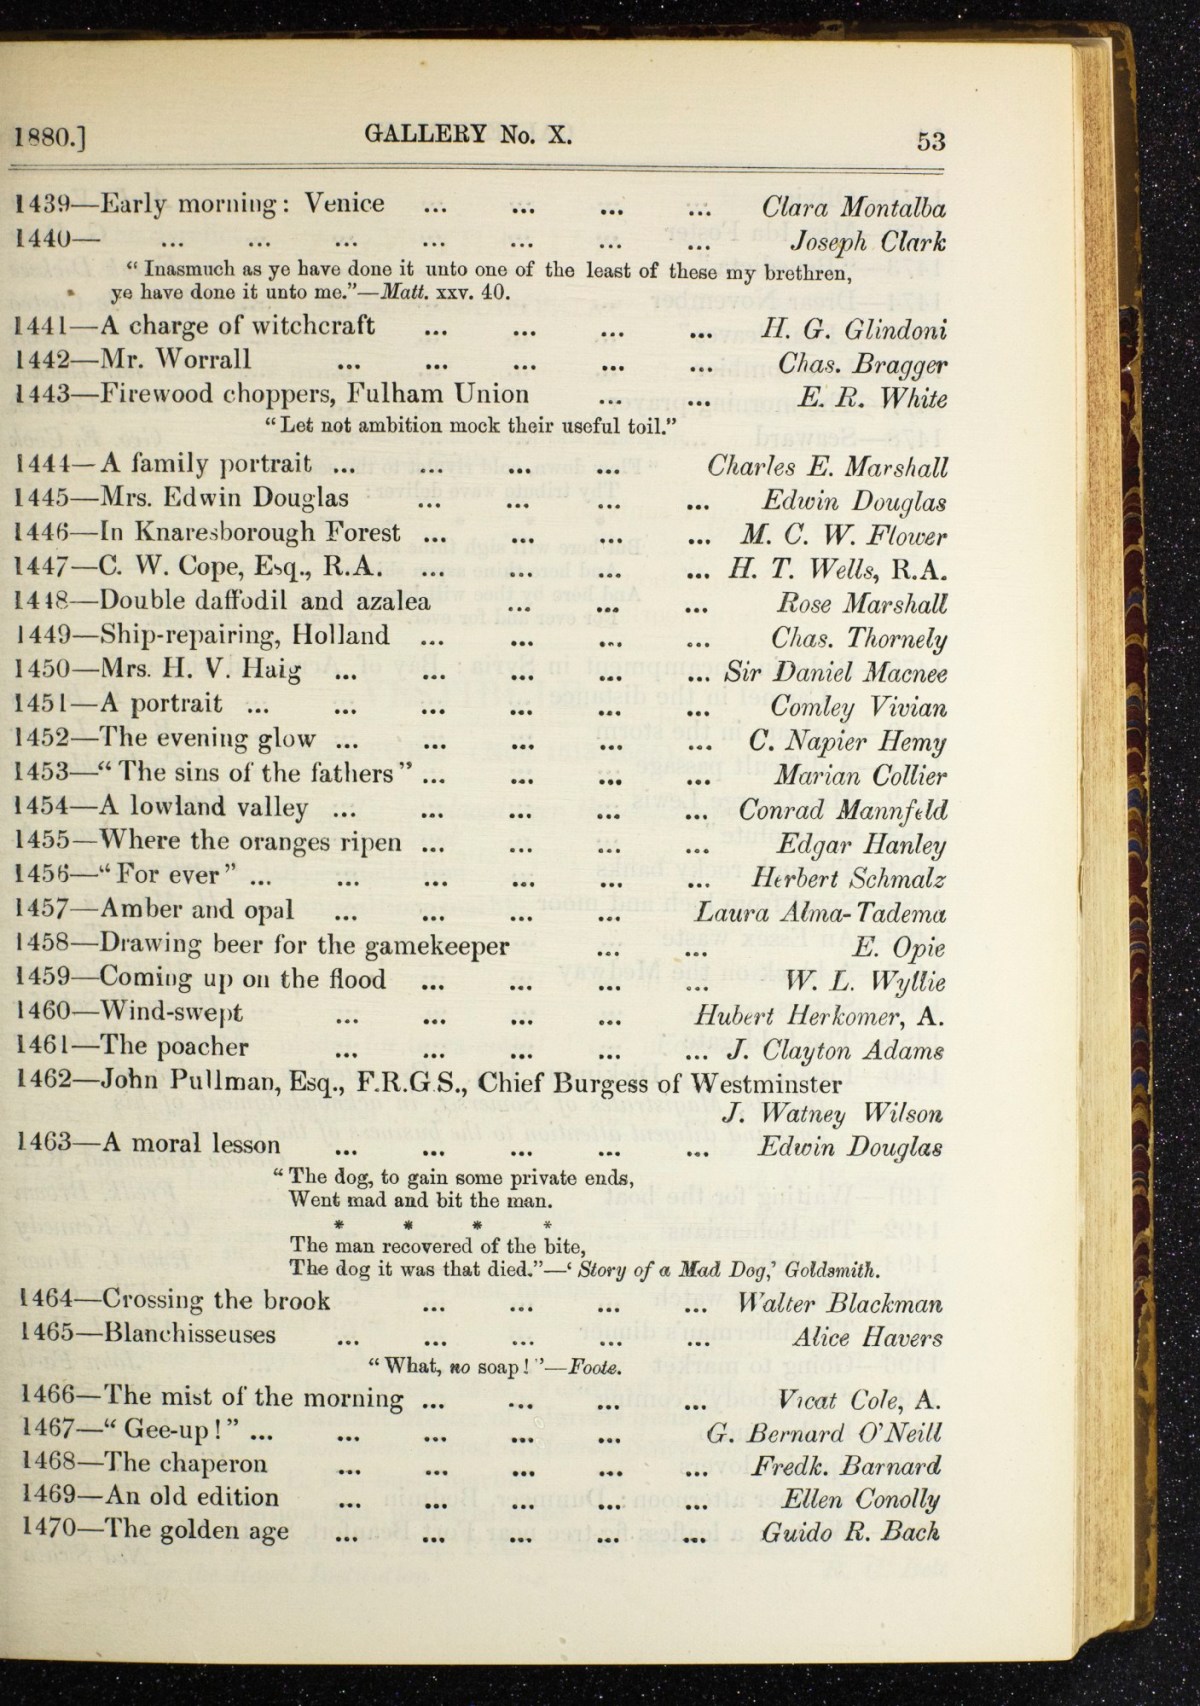 1880.] GALLERY No. X. 53
1439—Early morning: Venice ... ... ... ... Clara Montalba
1440— ... ... ... ... ... ... ... Joseph Clark
“Inasmuch as ye have done it unto one of the least of these my brethren,
ye have done it unto me.”—Matt. xxv. 40.
1441—A charge of witchcraft ... ... ... ... H. G. Glindoni
1442—Mr. Worrall ... ... ... ... ... Chas. Bragger
1443—Firewood choppers, Fulham Union ... ... E. R. White
“Let not ambition mock their useful toil.”
1444—A family portrait ... ... ... ... Charles E. Marshall
1445—Mrs. Edwin Douglas ... ... ... ... Edwin Douglas
1446—In Knaresborough Forest ... ... ... ... M. C. W. Flower
1447—C. W. Cope, Esq., R.A. ... ... ... ... H. T. Wells, R.A.
1448—Double daffodil and azalea ... ... ... Rose Marshall
1449—Ship-repairing, Holland ... ... ... ... Chas. Thornely
1450—Mrs. H. V. Haig ... ... ... ... ... Sir Daniel Macnee
1451—A portrait ... ... ... ... ... ... Comley Vivian
1452—The evening glow ... ... ... ... ... C. Napier Hemy
1453—“The sins of the fathers” ... ... ... ... Marian Collier
1454—A lowland valley ... ... ... ... ... Conrad Mannfeld
1455—Where the oranges ripen ... ... ... ... Edgar Hanley
1456—“For ever” ... ... ... ... ... ... Herbert Schmalz
1457—Amber and opal ... ... ... ... Laura Alma-Tadema
1458—Drawing beer for the gamekeeper ... ... E. Opie
1459—Coming up on the flood ... ... ... ... W. L. Wyllie
1460—Wind-swept ... ... ... ... Hubert Herkomer, A.
1461—The poacher ... ... ... ... ... J. Clayton Adams
1462—John Pullman, Esq., F.R.G.S., Chief Burgess of Westminster
J. Watney Wilson
1463—A moral lesson ... ... ... ... ... Edwin Douglas
“The dog, to gain some private ends,
Went mad and bit the man.
* * * *
The man recovered of the bite,
The dog it was that died.”—‘Story of a Mad Dog,’ Goldsmith.
1464—Crossing the brook ... ... ... ... Walter Blackman
1465—Blanchisseuses ... ... ... ... ... Alice Havers
“What, no soap!”—Foote.
1466—The mist of the morning ... ... ... ... Vicat Cole, A.
1467—“Gee-up!” ... ... ... ... ... G. Bernard O’Neill
1468—The chaperon ... ... ... ... ... Fredk. Barnard
1469—An old edition ... ... ... ... ... Ellen Conolly
1470—The golden age ... ... ... ... ... Guido R. Bach